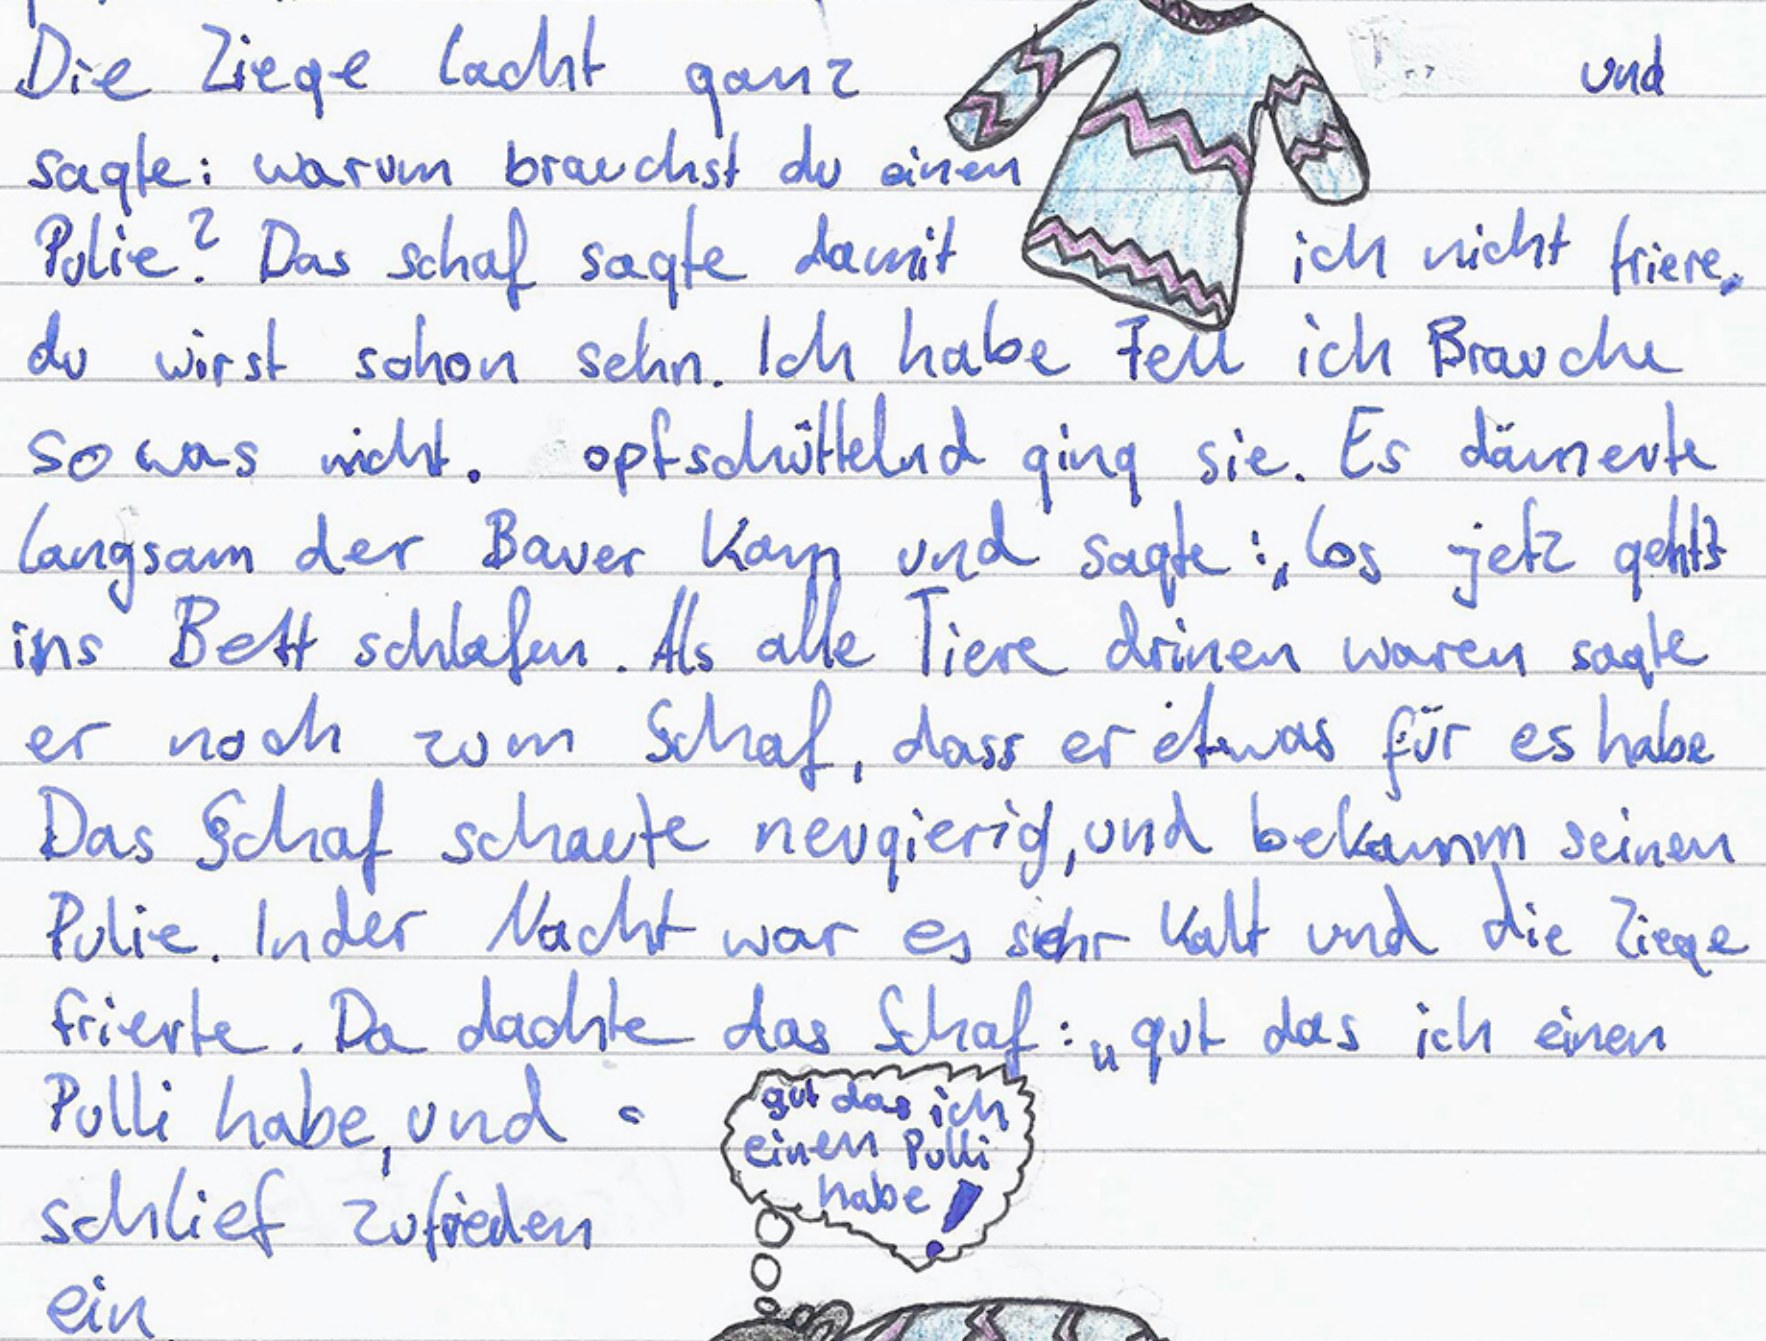 Die Ziege lacht ganz und
sagte: warum brauchst du einen
Pulie? Das schaf sagte damit ich nicht friere,
du wirst schon sehn. Ich habe Fell ich Brauche
so was nicht. opfschüttelnd ging sie. Es dämerte
langsam der Bauer kam und sagte: „los jetz gehts
ins Bett schlafen. Als alle Tiere drinen waren sagte
er noch zum Schaf, dass er etwas für es habe
Das Schaf schaute neugierig, und bekamm seinen
Pulie. In der Nacht war es sehr kalt und die Ziege
frierte. Da dachte das Schaf: „gut das ich einen
Pulli habe, und
schlief zufrieden
ein
gut das ich
einen Pulli
habe!